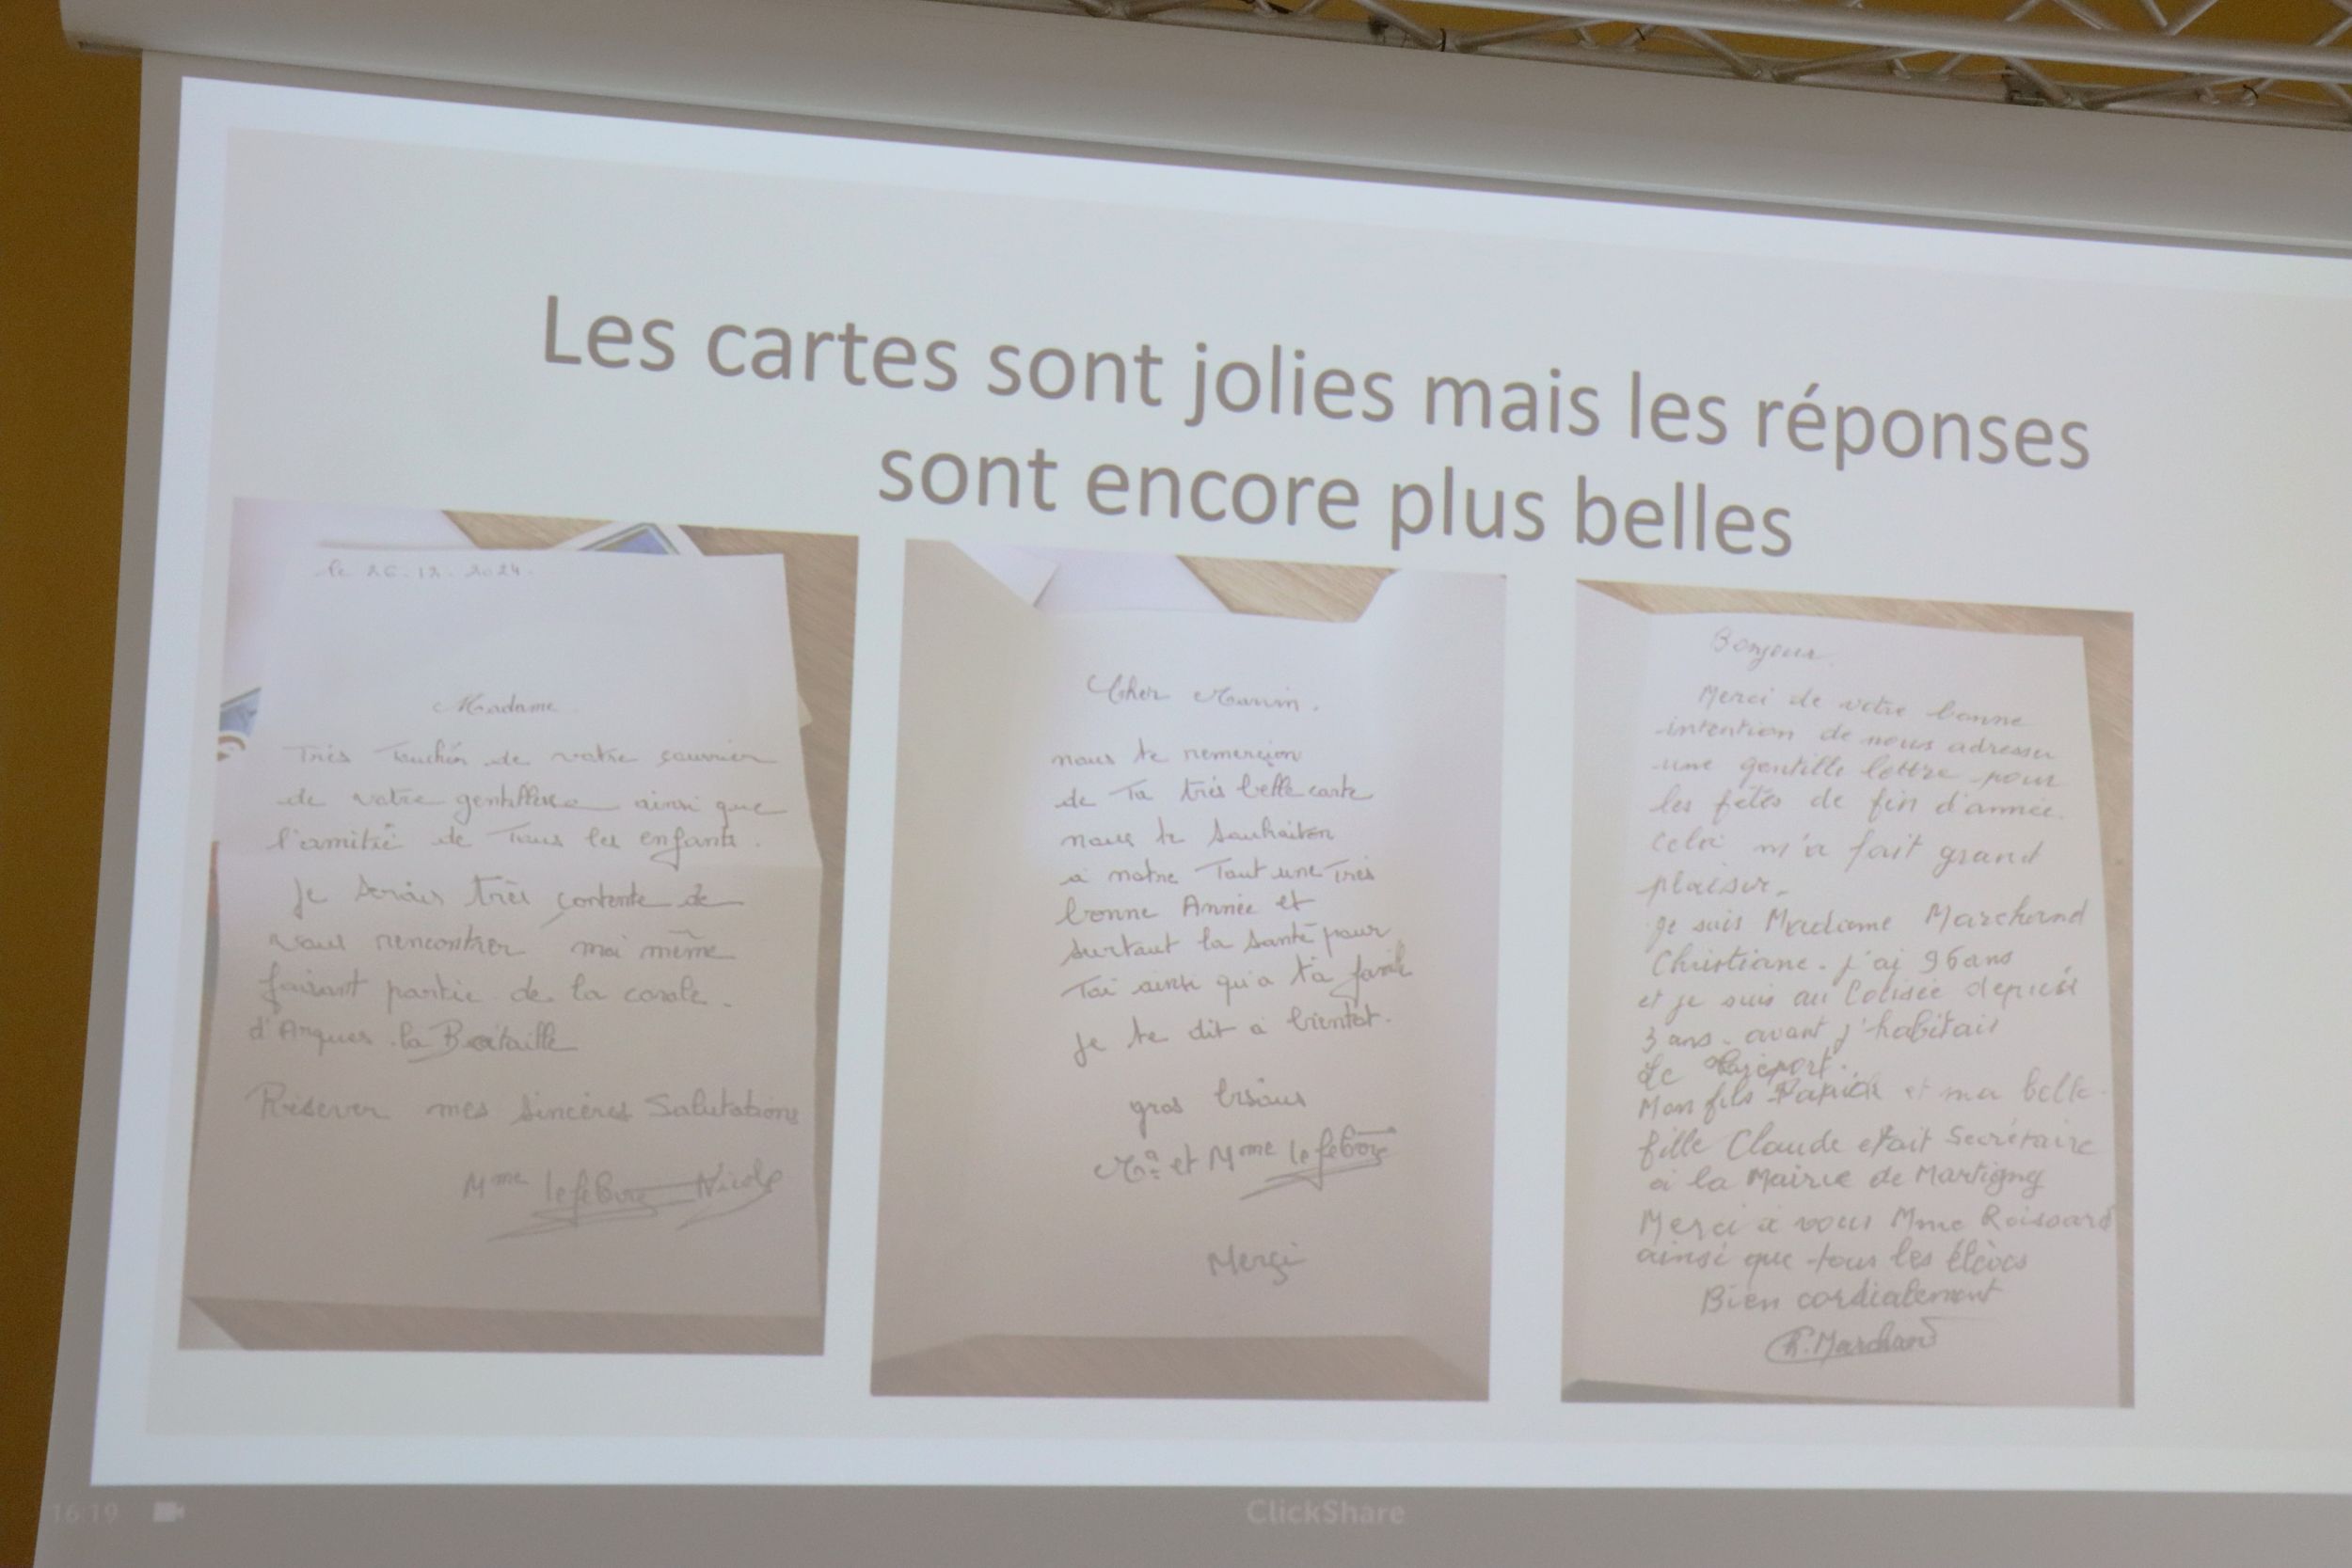 Les cartes sont jolies mais les réponses
sont encore plus belles
le 26.12.2024.
Madame
Très Touchés de votre courrier
de votre gentillesse ainsi que
l'amitié de Tous les enfants.
Je serais très contente de
vous rencontrer moi même
faisant partie de la corale.
d'Arques la Bataille
Réserver mes sincères Salutations
Mme lefebvre Nicole
Cher
nous te remerçion
de Ta très belle carte
nous te souhaiton
a notre Tout une Très
bonne Année et
surtout la santé pour
Toi ainsi qu'a ta famil
je te dit a bientot.
gros bisous
et Mme lefebvre
Merçi
Bonjour.
Merci de votre bonne
intention de nous adresser
une gentille lettre pour
les fêtes de fin d'année.
Cela m'a fait grand
plaisir.
je suis Madame Marchand
Christiane. j'ai 96 ans
et je suis au Colisée depuis
3 ans. avant j'habitais
Mon fils Patrick et ma belle-
fille Claude etait Secrétaire
à la Mairie de Martigny
Merci à vous Mme Roissard
ainsi que tous les élèves
Bien cordialement
Marchand
16:19
ClickShare